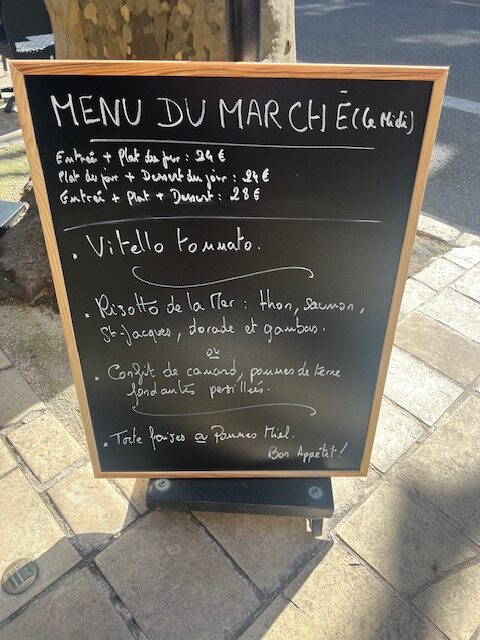 MENU DU MARCHÉ (Le Midi)
Entrée + Plat du jour : 24 €
Plat du jour + Dessert du jour : 24 €
Entrée + Plat + Dessert : 28 €
. Vitello tonnato.
. Risotto de la Mer : thon, saumon,
St-Jacques, dorade et gambas.
ou
. Confit de canard, pommes de terre
fondantes persillées.
. Tarte fraises ou Pommes Miel.
Bon Appétit !